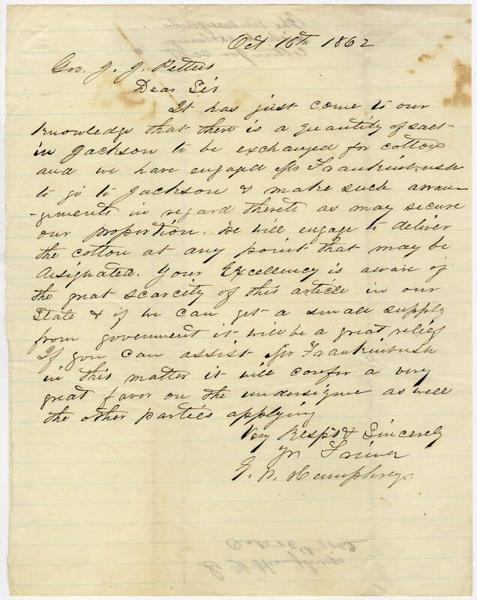 Oct 16th 1862
Gov. J. J. Pettus
Dear Sir
It has just come to our
knowledge that there is a quantity of salt
in Jackson to be exchanged for cotton
and we have engaged Mr Frankinbush
to go to Jackson & make such arran-
-gements in regard thereto as may secure
our proportion. We will engage to deliver
the cotton at any point that may be
designated. Your Excellency is aware of
the great scarcity of this article in our
State & if we can get a small supply
from government it will be a great relief
If you can assist Mr Frankinbush
in this matter it will confer a very
great favor on the undersigned as well
the other parties applying
Very Respt & Sincerely
Yr Friend
Humphreys